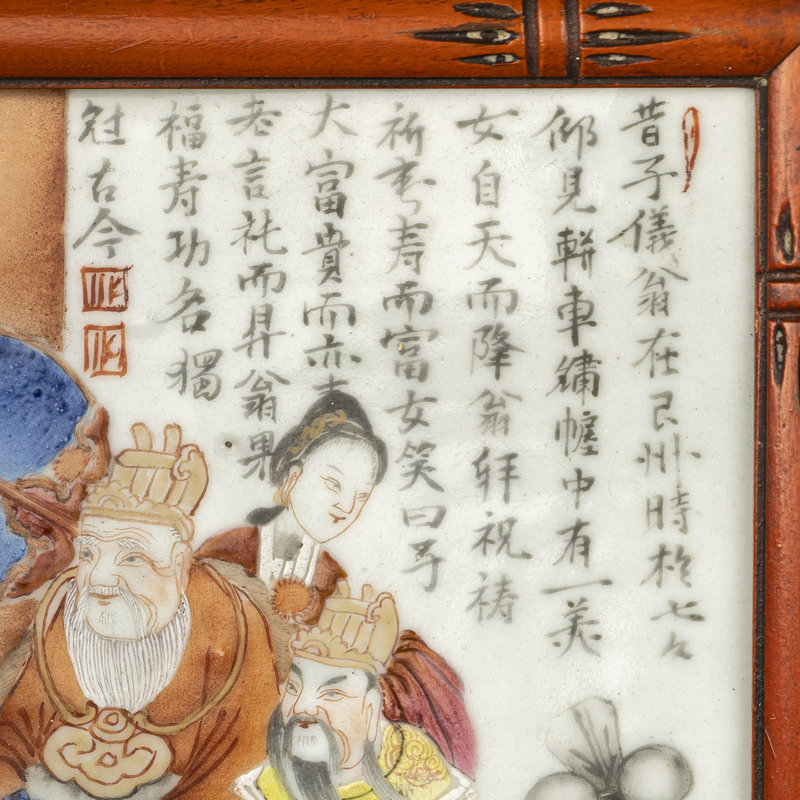 昔子儀翁在己州時於七夕
仰見輧車繡幄中有一美
女自天而降翁拜祝禱
祈寿而富女笑曰予
大富貴而亦壽
老言祂而昇翁果
福寿功名獨
冠古今